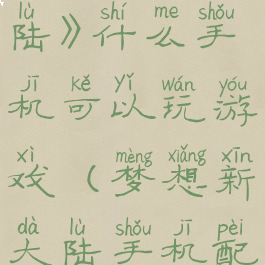 lù shí me shǒu
陆》什么手
jī kě yǐ wán yóu
机可以玩游
xì mèng xiǎng xīn
戏(梦想新
dà lù shǒu jī pèi
大陆手机配